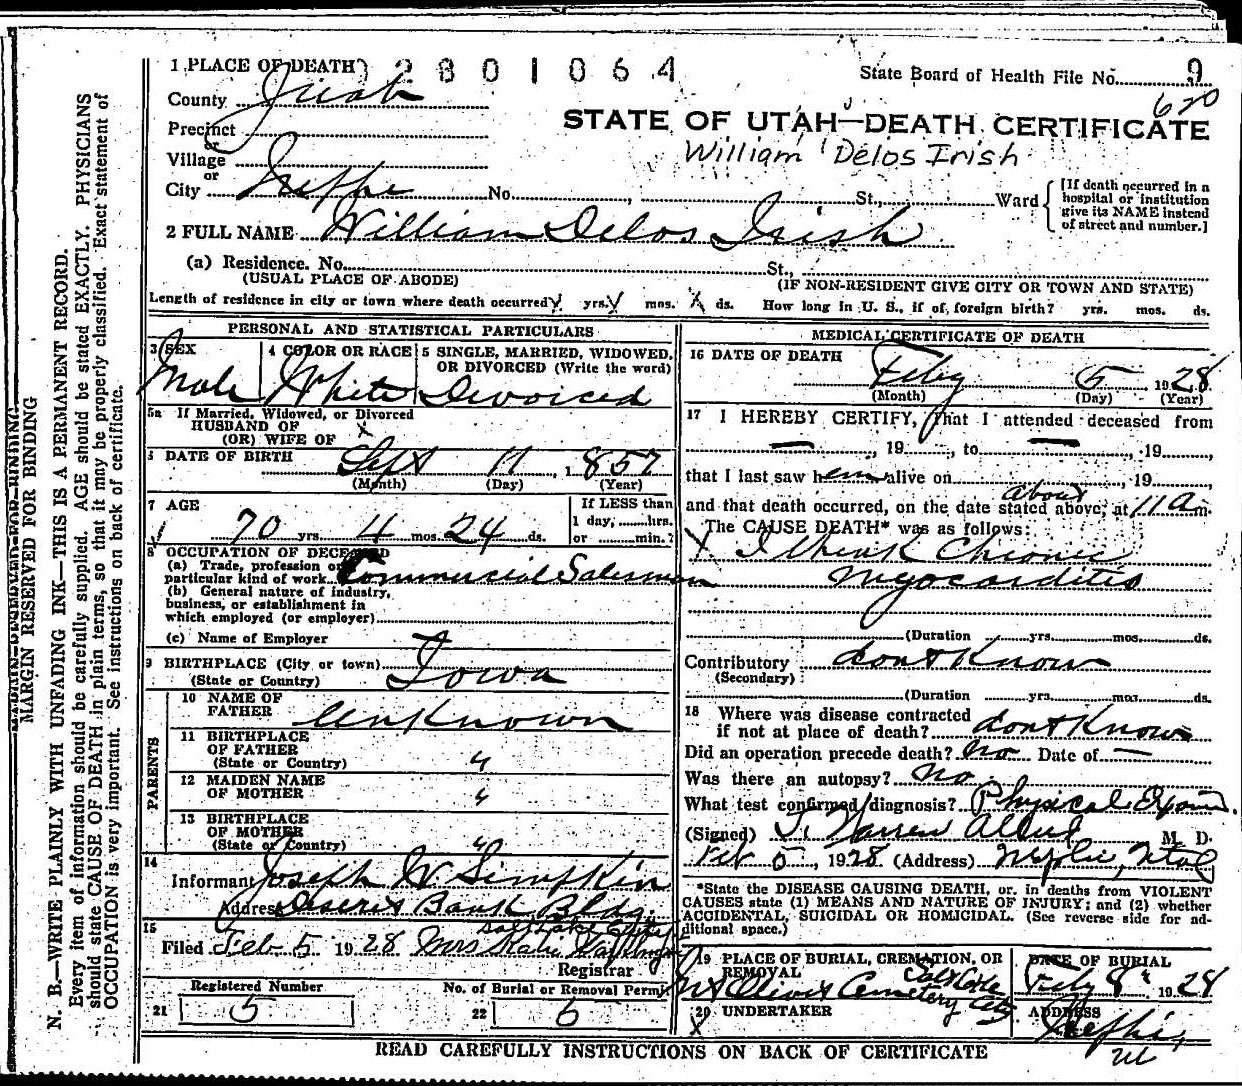 1 PLACE OF DEATH 2801064
State Board of Health File No. 9
620
County Juab
STATE OF UTAH—DEATH CERTIFICATE
Precinct
or
William Delos Irish
Village
or
City Nephi No. , St., Ward
[If death occurred in a hospital or institution give its NAME instead of street and number.]
2 FULL NAME William Delos Irish
(a) Residence. No. St.,
(USUAL PLACE OF ABODE) (IF NON-RESIDENT GIVE CITY OR TOWN AND STATE)
Length of residence in city or town where death occurred yrs. mos. ds. How long in U. S., if of foreign birth? yrs. mos. ds.
PERSONAL AND STATISTICAL PARTICULARS
3 SEX
Male
4 COLOR OR RACE
White
5 SINGLE, MARRIED, WIDOWED, OR DIVORCED (Write the word)
Divorced
5a If Married, Widowed, or Divorced
HUSBAND OF
(OR) WIFE OF X
6 DATE OF BIRTH Sept 11 1857
(Month) (Day) (Year)
7 AGE
70 yrs. 4 mos. 24 ds.
If LESS than
1 day, hrs.
or min.?
8 OCCUPATION OF DECEASED
(a) Trade, profession or
particular kind of work Commercial Salesman
(b) General nature of industry,
business, or establishment in
which employed (or employer)
(c) Name of Employer
9 BIRTHPLACE (City or town)
(State or Country) Iowa
PARENTS
10 NAME OF
FATHER Unknown
11 BIRTHPLACE
OF FATHER
(State or Country) "
12 MAIDEN NAME
OF MOTHER "
13 BIRTHPLACE
OF MOTHER
(State or Country) "
14
Informant Joseph W Simpkin
Address Deseret Bank Bldg.
Salt Lake City
15
Filed Feb 5 1928 Mrs Katie
Registrar
Registered Number
21 5
No. of Burial or Removal Permit
22 6
MEDICAL CERTIFICATE OF DEATH
16 DATE OF DEATH
Feby 5 1928
(Month) (Day) (Year)
17 I HEREBY CERTIFY, That I attended deceased from
— , 19 , to — , 19 ,
that I last saw h alive on , 19 ,
about
and that death occurred, on the date stated above, at 11 a m.
The CAUSE DEATH* was as follows:
I think Chronic
Myocarditis
(Duration yrs. mos. ds.
Contributory dont Know
(Secondary)
(Duration yrs. mos. ds.
18 Where was disease contracted
if not at place of death? dont Know
Did an operation precede death? No Date of —
Was there an autopsy? No
What test confirmed diagnosis? Physical Exam.
(Signed) T. Warren Allred M. D.
Feb 5, 1928 (Address) Nephi, Utah
*State the DISEASE CAUSING DEATH, or, in deaths from VIOLENT
CAUSES state (1) MEANS AND NATURE OF INJURY; and (2) whether
ACCIDENTAL, SUICIDAL OR HOMICIDAL. (See reverse side for ad-
ditional space.)
19 PLACE OF BURIAL, CREMATION, OR
REMOVAL
Mt Olivet Cemetery Salt Lake City
DATE OF BURIAL
Feby 8, 1928
20 UNDERTAKER
X
ADDRESS
Nephi,
Ut
READ CAREFULLY INSTRUCTIONS ON BACK OF CERTIFICATE
MARGIN RESERVED FOR BINDING
N. B.—WRITE PLAINLY WITH UNFADING INK—THIS IS A PERMANENT RECORD.
Every item of information should be carefully supplied. AGE should be stated EXACTLY. PHYSICIANS
should state CAUSE OF DEATH in plain terms, so that it may be properly classified. Exact statement of
OCCUPATION is very important. See instructions on back of certificate.